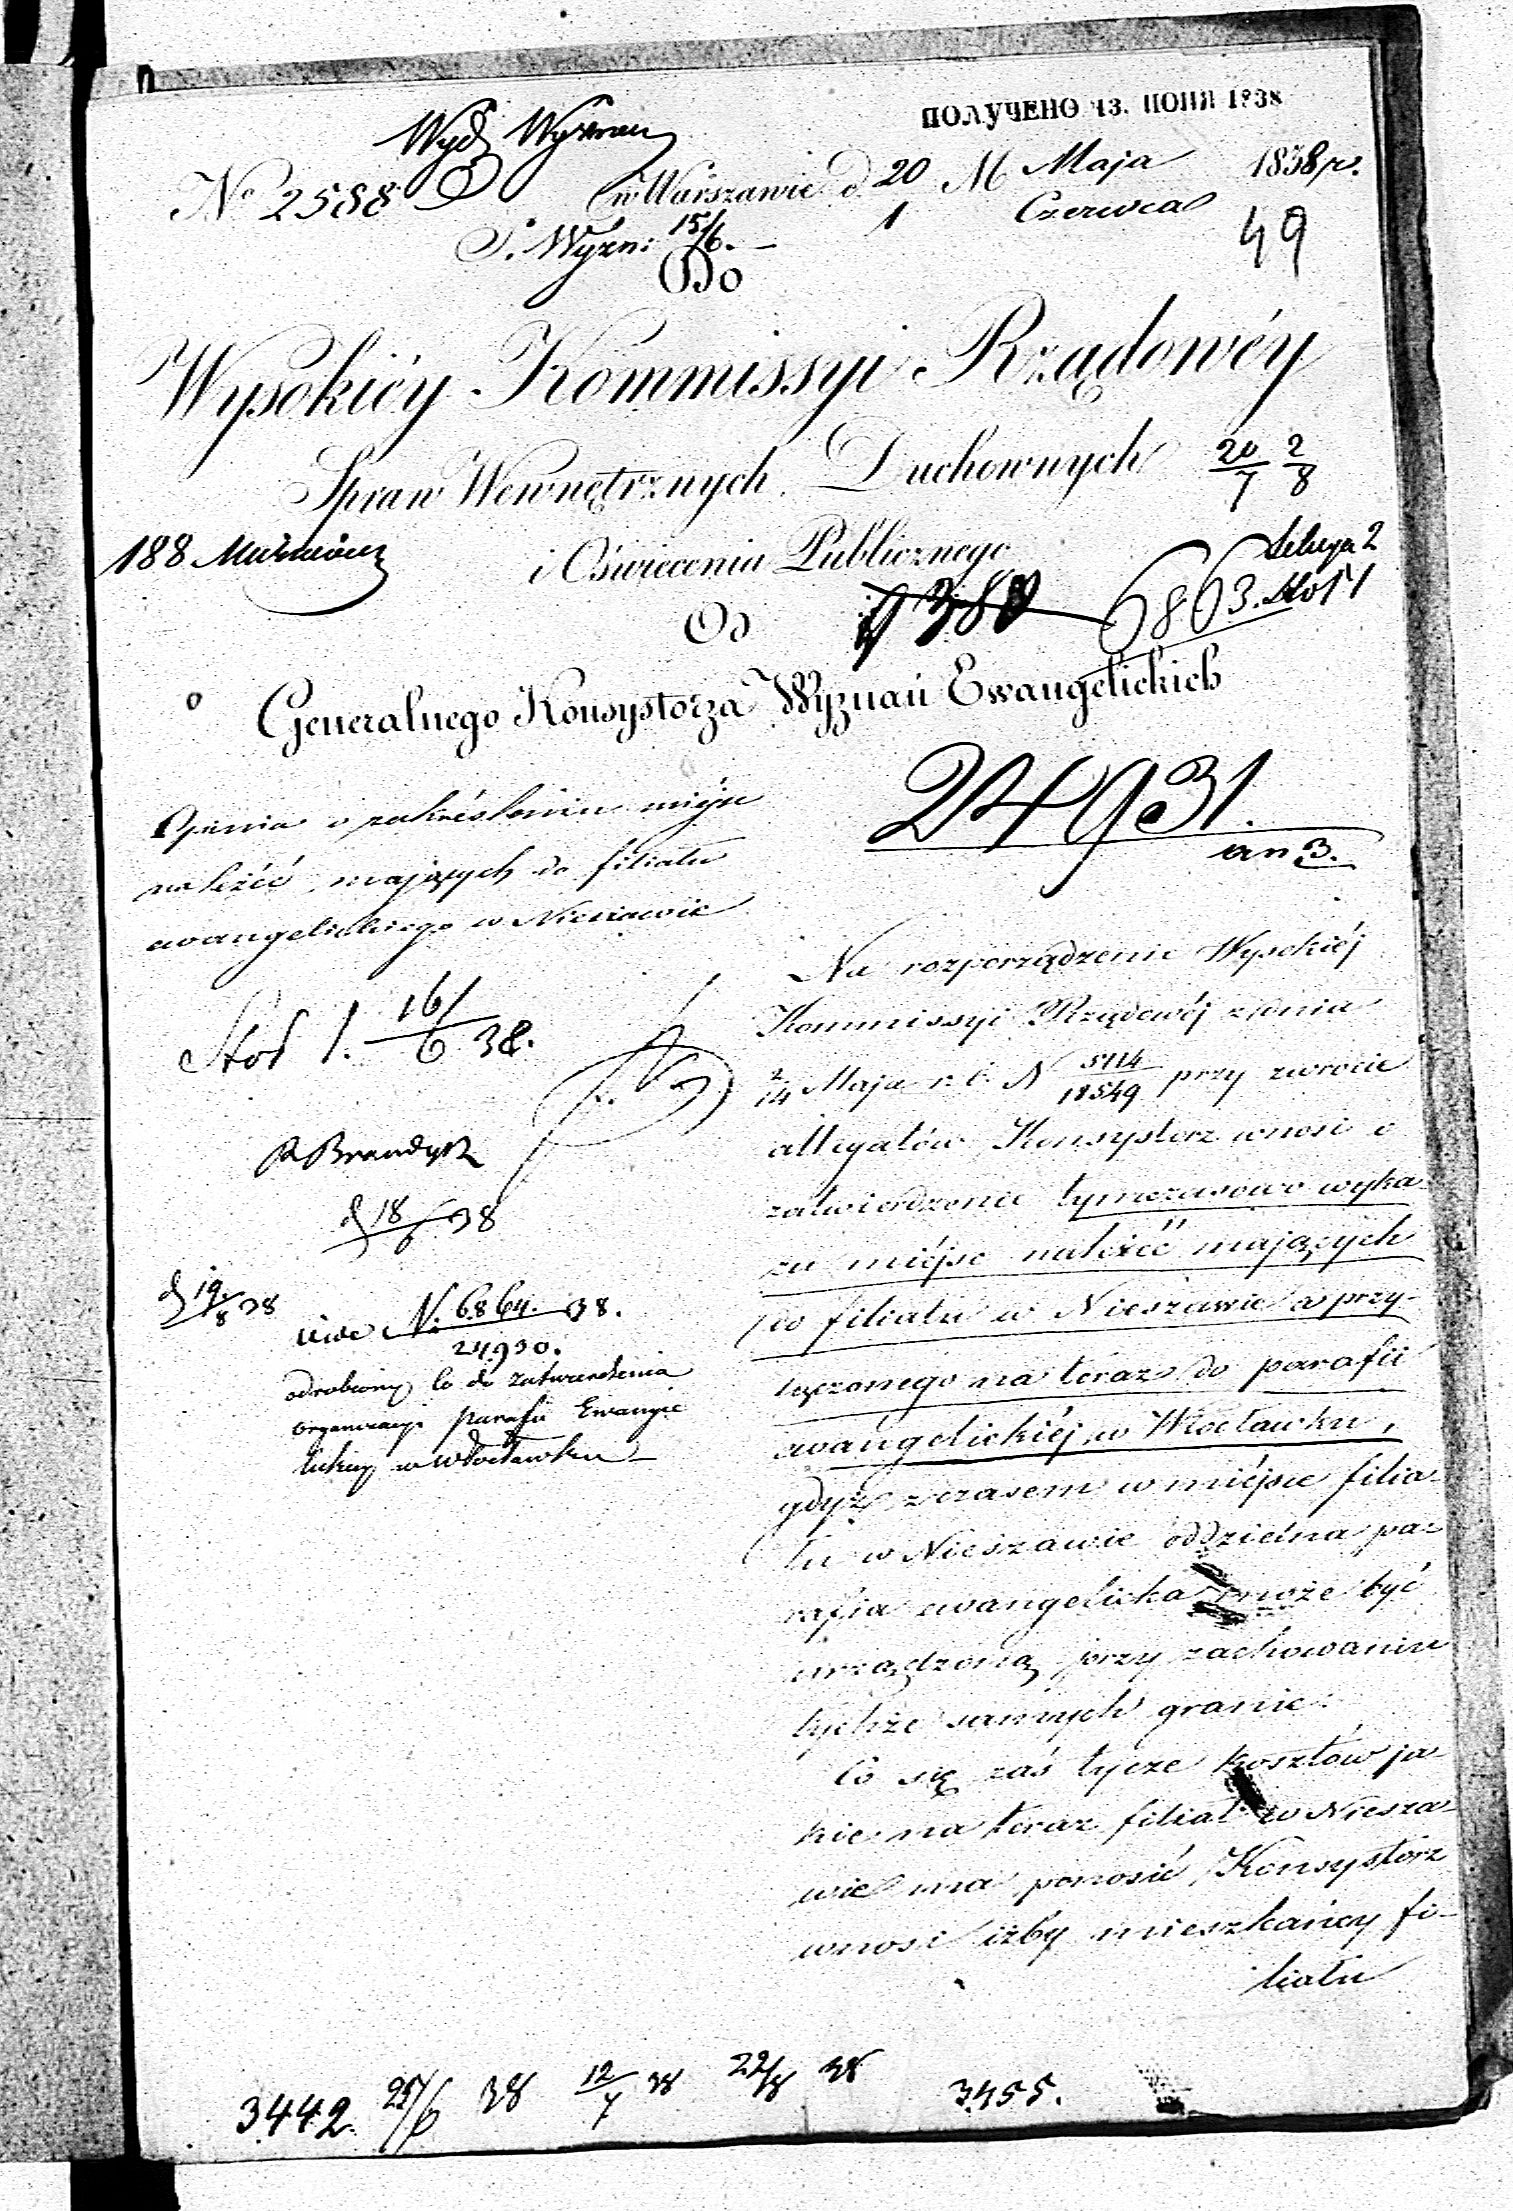 ПОЛУЧЕНО 13. ІЮНЯ 1838
Wydz Wyznań
No 2588 w Warszawie d. 20 M Maja 1838 r.
1 Czerwca
S. Wyzn: 15/6. 49
Do
Wysokiéy Kommissyi Rządowéy
Spraw Wewnętrznych Duchownych 20/7 2/8
188
i Oświecenia Publicznego
6863.
Od
Generalnego Konsystorza Wyznań Ewangelickich
24931.
an 3.
Opinia o zakréśleniu miéysc
należéć mających do filiału
ewangelickiego w Nieszawie
Stoł 1. 16/6 38.
R Brandysz
d 18/6 38
d 19/8 38
vide N. 6864/24930. 38.
odrobiony co do zatwierdzenia
organizacyi parafii Ewangie
lickiej w Włocławku
Na rozporządzenie Wysokiéj
Kommissyi Rządowéj z dnia
2/14 Maja r. b. N 5114/18549 przy zwrocie
allegatów Konsystorz wnosi o
zatwierdzenie tymczasowo wyka
zu miéjsc należéć mających
do filiału w Nieszawie a przy-
łączonego na teraz do parafii
ewangelickiéj w Włocławku,
gdyż z czasem w miéjsce filia-
łu w Nieszawie oddzielna pa-
rafia ewangelicka może być
urządzoną przy zachowaniu
tychże samych granic.
Co się zaś tycze kosztów ja-
kie na teraz filiał w Niesza-
wie ma ponosić, Konsystorz
wnosi iżby mieszkańcy fi-
liału
3442. 25/6 38 12/7 38 22/8 38 3455.